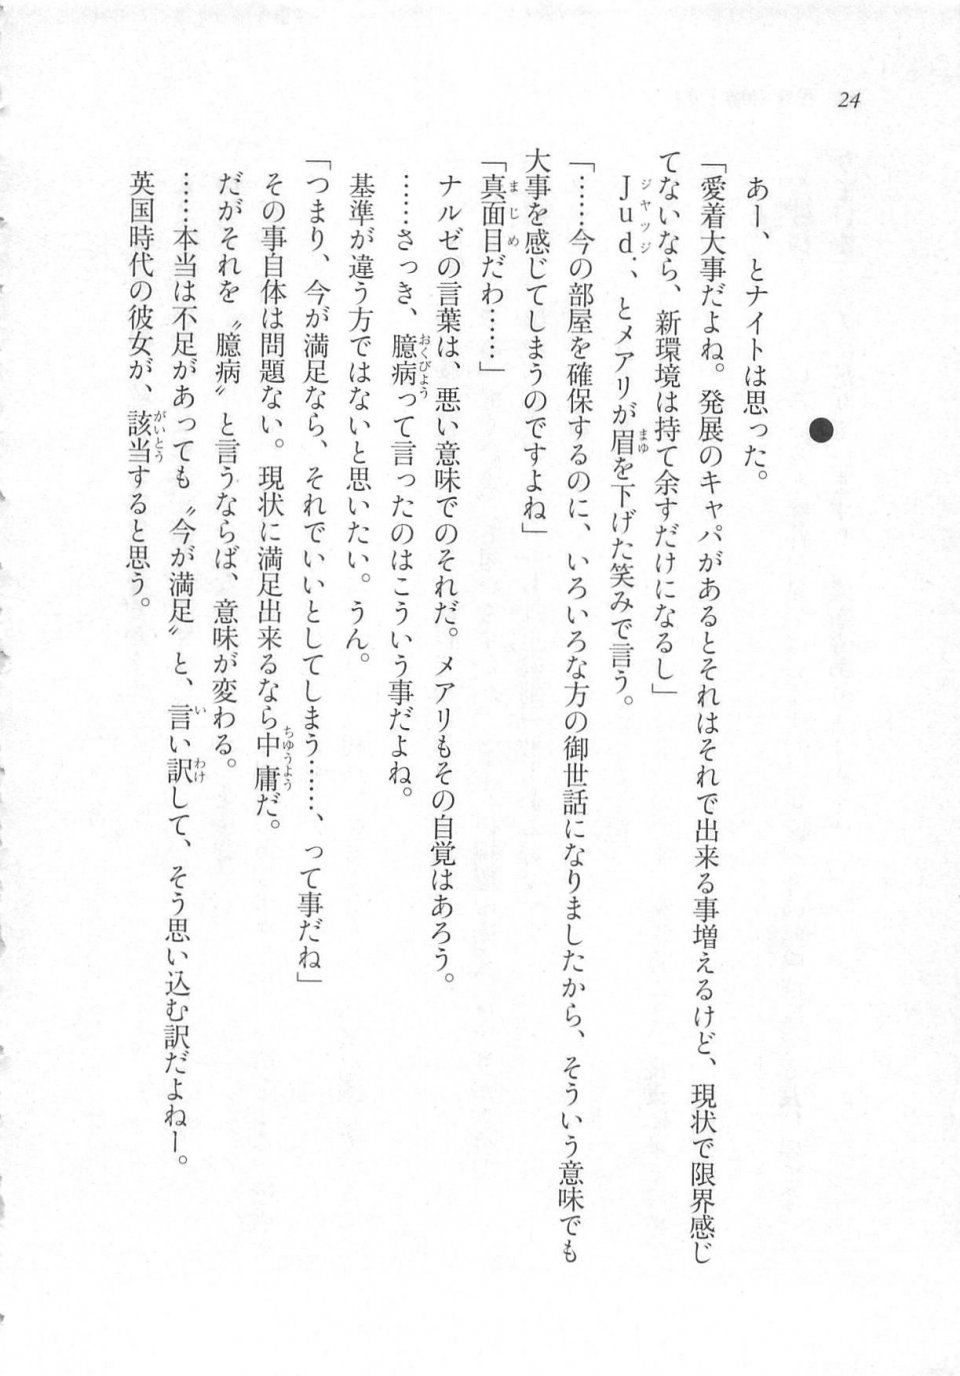 24
●
あー、とナイトは思った。
「愛着大事だよね。発展のキャパがあるとそれはそれで出来る事増えるけど、現状で限界感じ
てないなら、新環境は持て余すだけになるし」
Jud.、とメアリが眉を下げた笑みで言う。
「……今の部屋を確保するのに、いろいろな方の御世話になりましたから、そういう意味でも
大事を感じてしまうのですよね」
「真面目だわ……」
ナルゼの言葉は、悪い意味でのそれだ。メアリもその自覚はあろう。
……さっき、臆病って言ったのはこういう事だよね。
基準が違う方ではないと思いたい。うん。
「つまり、今が満足なら、それでいいとしてしまう……、って事だね」
その事自体は問題ない。現状に満足出来るなら中庸だ。
だがそれを〝臆病〟と言うならば、意味が変わる。
……本当は不足があっても〝今が満足〟と、言い訳して、そう思い込む訳だよねー。
英国時代の彼女が、該当すると思う。